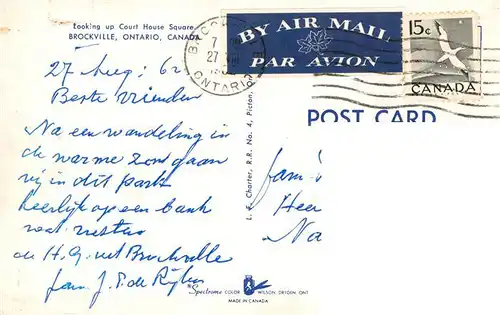 Looking up Court House Square,
BROCKVILLE, ONTARIO, CANADA
27 Aug: 62
Beste vrienden
Na een wandeling in
de warme zon gaan
wij in dit park
heerlijk op een bank
wat rusten
de H.G. uit Brockville
fam. J. T. de
BROC
7
27
ONTARIO
BY AIR MAIL
PAR AVION
15c
CANADA
POST CARD
L. F. Charter, R.R. No. 4, Picton,
fam:
Heer
Na
Spectrome COLOR WILSON, DRYDEN, ONT.
MADE IN CANADA